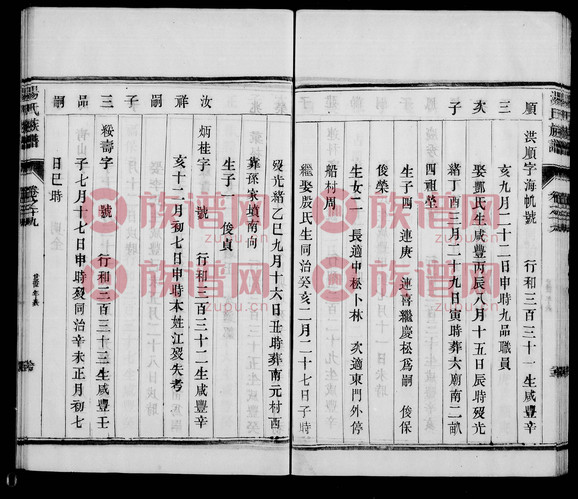 順
洪順字海帆號　行和三百三十一生咸豐辛
三
亥九月二十二日申時九品職員
次
娶鄧氏生咸豐丙辰八月十五日辰時歿光
子
緒丁酉三月二十九日寅時葬大廟南二畝
四祖塋
生子四　連庚　連喜繼慶松爲嗣　俊保
俊榮
生女二　長適中松卜林　次適東門外停
船村周
繼娶殷氏生同治癸亥二月二十七日子時
歿光緒乙巳九月十六日丑時葬南元村西
葬孫家墳南向
生子一　俊貞
汝
炳桂字　號　行和三百三十二生咸豐辛
祥
亥十二月初七日申時本姓江歿失考
嗣
子
三
綏壽字　號　行和三百三十三生咸豐壬
品
子七月十七日申時歿同治辛未正月初七
嗣
日巳時
楊氏族譜
卷之十九
族谱网
zupu.cn